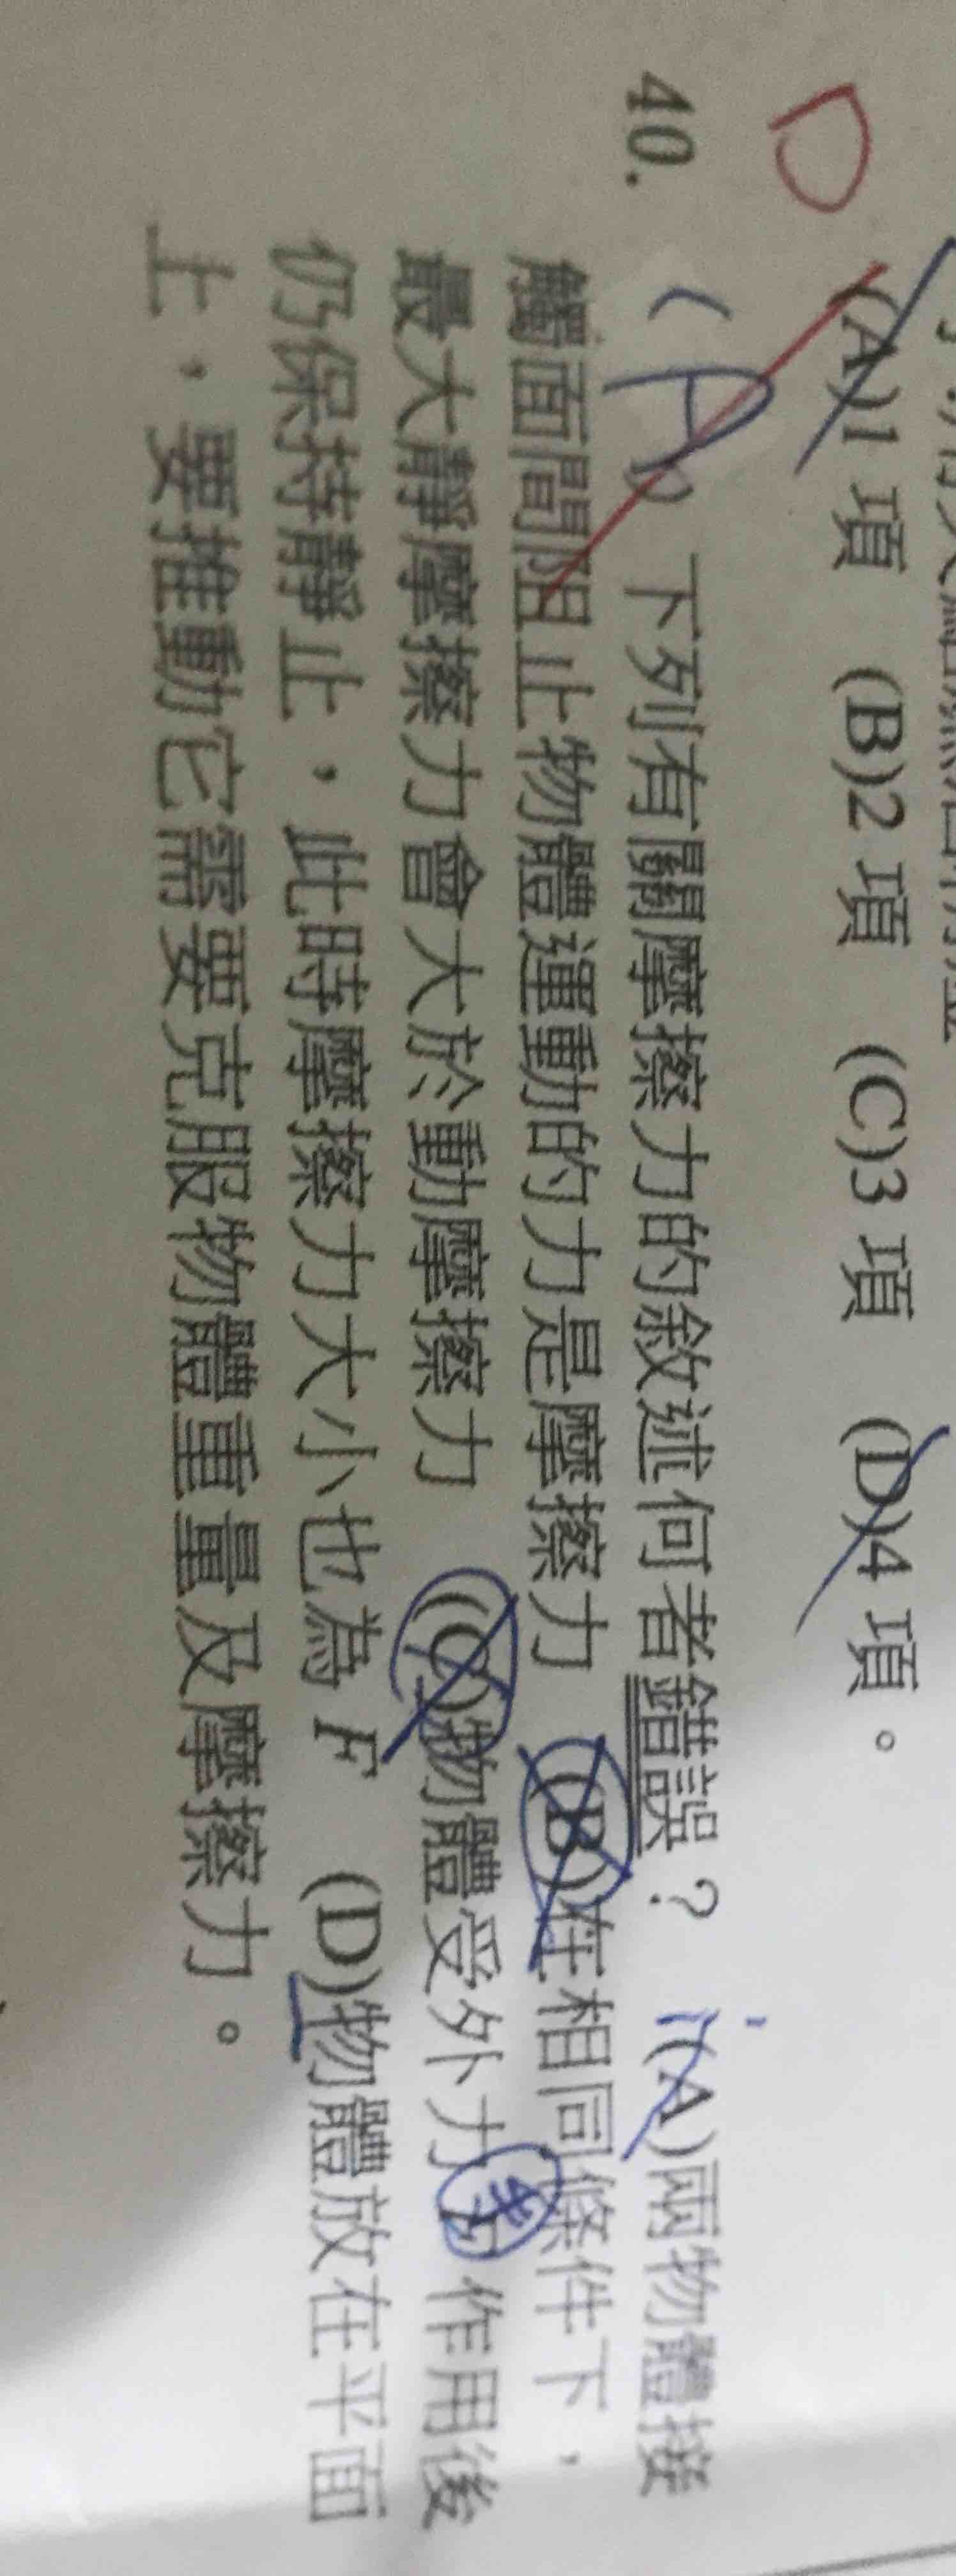 (A)1 項 (B)2 項 (C)3 項 (D)4 項。
D
40. ( A ) 下列有關摩擦力的敘述何者錯誤？ (A)兩物體接
觸面間阻止物體運動的力是摩擦力 (B)在相同條件下，
最大靜摩擦力會大於動摩擦力 (C)物體受外力 F 作用後
仍保持靜止，此時摩擦力大小也為 F (D)物體放在平面
上，要推動它需要克服物體重量及摩擦力。